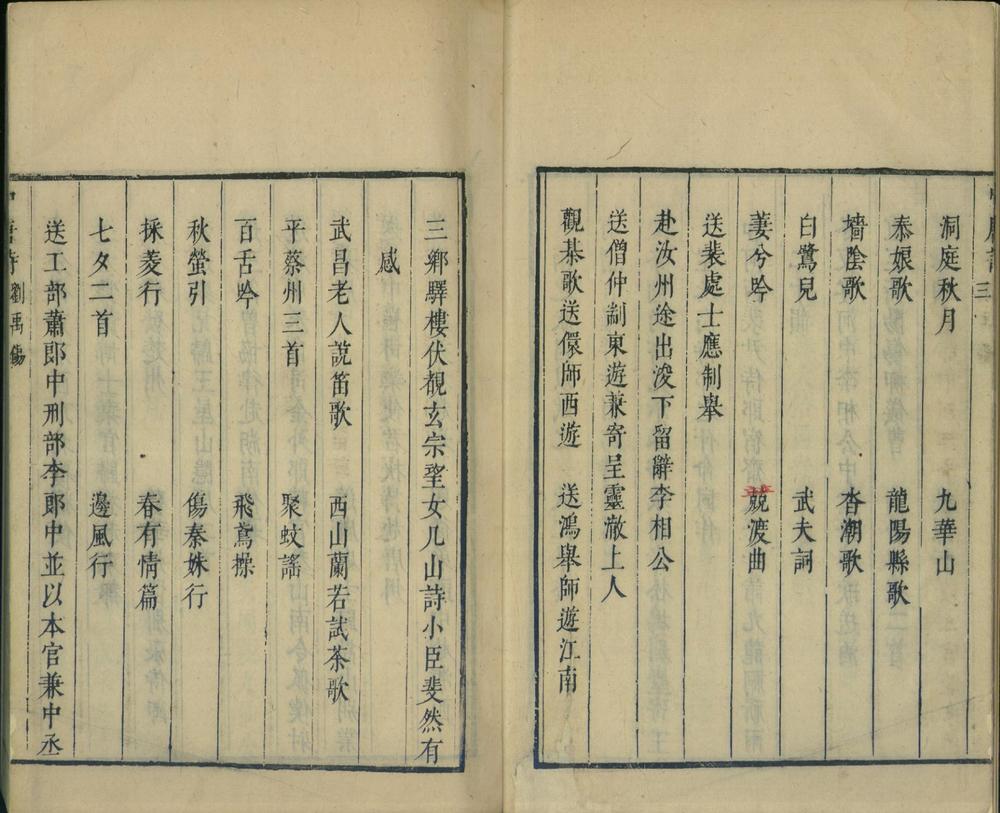 三
洞庭秋月　九華山
泰娘歌　龍陽縣歌
墻陰歌　沓潮歌
白鷺兒　武夫詞
萋兮吟　競渡曲
送裴處士應制舉
赴汝州途出浚下留辭李相公
送僧仲剬東遊兼寄呈靈澈上人
觀棊歌送儇師西遊　送鴻舉師遊江南
三鄉驛樓伏覩玄宗望女几山詩小臣斐然有
感
武昌老人說笛歌　西山蘭若試茶歌
平蔡州三首　聚蚊謠
百舌吟　飛鳶操
秋螢引　傷秦姝行
採菱行　春有情篇
七夕二首　邊風行
送工部蕭郎中刑部李郎中並以本官兼中丞
劉禹錫